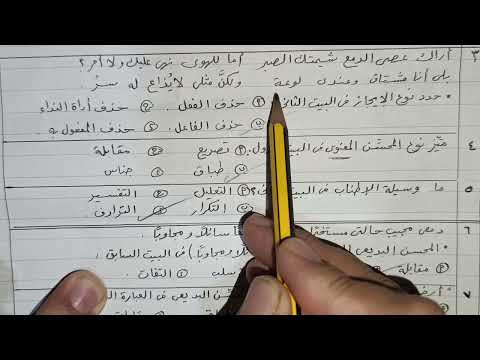 ٣ أراك عصي الدمع شيمتك الصبر أما للهوى نهي عليك ولا أمر؟
بلى أنا مشتاق وعندي لوعة ولكنَّ مثلي لا يُذاع له سرُّ
• حدد نوع الإيجاز في البيت الثاني. أ حذف الفعل. ج حذف أداة النداء
ب حذف الفاعل. د حذف المفعول به
٤ ميّز نوع المحسّن المعنوى في البيت الأول. أ تصريع ج مقابلة
ب طباق د جناس
٥ ما وسيلة الإطناب في البيت أ التعليل ج التفسير
ب التكرار د الترادف
٦ دمعى مجيب حالتي مستخبرًا سائلاً ومجاوبًا.
• المحسن البديعي ومجاوبًا) في البيت السابق:
أ مقابلة سلب د التفات
٧ البديعي في العبارة